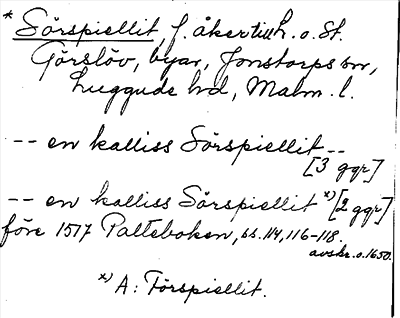 * Sörspiellit, f. åker till L. o. St.
Görslöv, byar, Jonstorps sn,
Luggude hd, Malm. l.
-- en kalliss Sörspiellit --
[3 ggr]
-- en kalliss Sörspiellit x) [2 ggr]
före 1517 Palteboken, ss. 114, 116-118.
avskr. o. 1650.
x) A: Förspiellit.